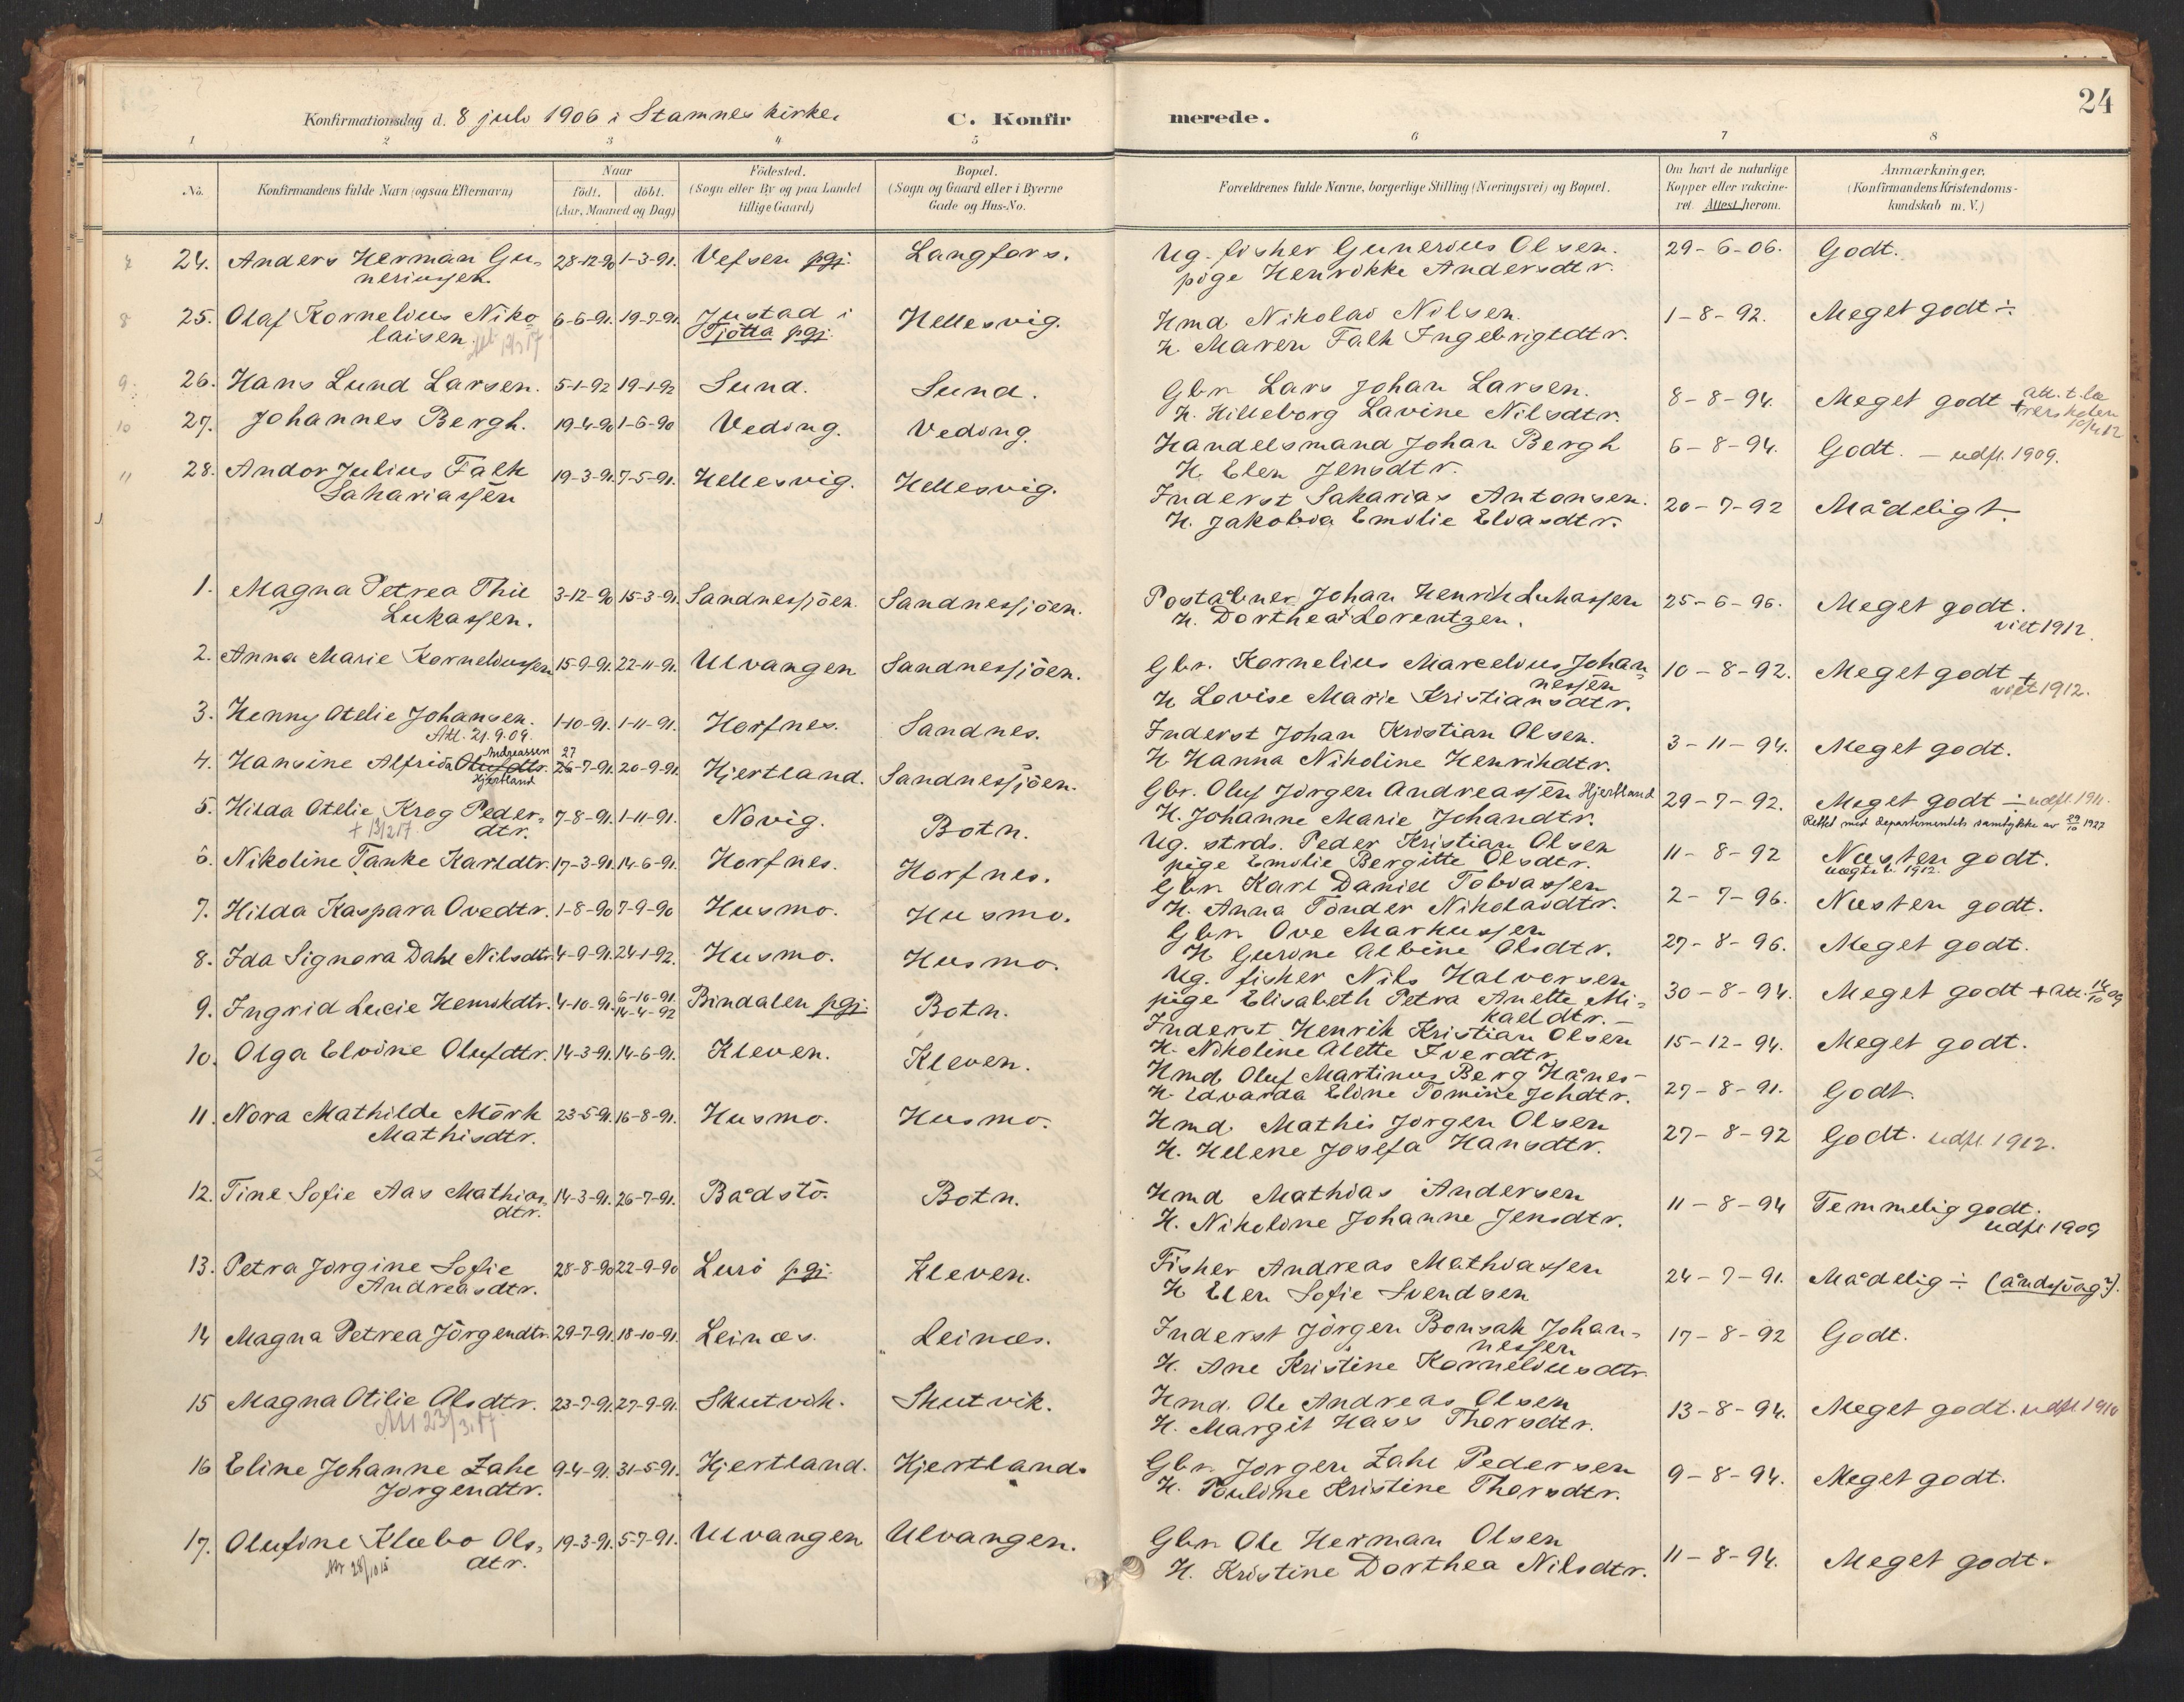 24
Konfirmationsdag d. 8 juli 1906 i Stamnes kirke.
C. Konfirmerede.
1 2 3 4 5 6 7 8
No. Konfirmandens fulde Navn (ogsaa Efternavn) Naar födt. döbt. (Aar, Maaned og Dag) Födested. (Sogn eller By og paa Landet tillige Gaard) Bopæl. (Sogn og Gaard eller i Byerne Gade og Hus-No. Forældrenes fulde Navne, borgerlige Stilling (Næringsvei) og Bopæl. Om havt de naturlige Kopper eller vakcineret. Attest herom. Anmærkninger. (Konfirmandens Kristendomskundskab m. V.)
24. Anders Herman Gu- 28-12-90 1-3-91. Vefsen pgj. Langfors. Ug. fisker Gunerius Olsen. 29-6-06. Godt.
neriussen. pige Henrikke Andersdtr.
8 25. Olaf Kornelius Niko 6-6-91. 19-7-91. Justad i Hellesvig. Hmd. Nikolai Nilsen. 1-8-92. Meget godt ÷
laisen. Tjötta pgj. H. Maren Falk Ingebrigtdtr.
9. 26. Hans Lund Larsen. 5-1-92 19-1-92 Sund. Sund. Gbr. Lars Johan Larsen. 8-8-94. Meget godt +
H. Hilleborg Lavine Nilsdtr.
10 27. Johannes Bergh. 19-4-90 1-6-90 Veding. Veding. Handelsmand Johan Bergh 6-8-94. Godt. – udfl. 1909.
H. Elen Jensdtr.
11 28. Andor Julius Falk 19-3-91. 7-5-91. Hellesvig. Hellesvig. Inderst Sakarias Antonsen. 20-7-92 Mådeligt.
Sakariassen H. Jakobia Emilie Eliasdtr.
1. Magna Petrea Thie 3-12-90 15-3-91. Sandnessjöen. Sandnessjöen. Postabner Johan Henrik Lukassen 25-6-96. Meget godt.
Lukassen. H. Dorthea Lorentzen. viet 1912.
2. Anna Marie Korneliussen 15-9-91. 22-11-91. Ulvangen Sandnessjöen. Gbr. Kornelius Marcelius Johan 10-8-92. Meget godt +
nessen viet 1912.
H Lovise Marie Kristiansdtr.
3. Henny Otelie Johansen. 1-10-91. 1-11-91. Horfnes. Sandnes. Inderst Johan Kristian Olsen. 3-11-94. Meget godt.
Att. 21.9.09. H Hanna Nikoline Henrikdtr.
Andreassen 27
4. Hansine Alfrida Olufdtr. 26-7-91. 20-9-91. Hjertland. Sandnessjöen. Gbr. Oluf Jörgen Andreassen Hjertland 29-7-92. Meget godt ÷ udfl. 1911.
Hjertland H. Johanne Marie Johandtr. Rettet med departementets samtykke av 29/10 1927
5. Hilda Otelie Krog Peder- 7-8-91. 1-11-91. Novig. Botn. Ug. strds. Peder Kristian Olsen 11-8-92 Næsten godt.
dtr. pige Emilie Bergitte Olsdtr.
6. Nikoline Tanke Karldtr. 17-3-91. 14-6-91. Horfnes. Horfnes. Gbr. Karl Daniel Tobiassen 2-7-96. Næsten godt.
H. Anna Tonder Nikolaidtr.
7. Hilda Kaspara Ovedtr. 1-8-90 7-9-90 Husmo. Husmo. Gbr. Ove Markussen 27-8-96. Meget godt.
H Gurine Albine Olsdtr.
8. Ida Signora Dahl Nilsdtr. 4-9-91. 24-1-92. Husmo. Husmo. Ug. fisker Nils Halvorsen 30-8-94. Meget godt + Att. 14/10 09
pige Elisabeth Petra Anette Mi-
kaeldtr. –
9. Ingrid Lucie Henrikdtr. 4-10-91. 6-10-91. 14-4-92 Bindalen pgj. Botn. Inderst Henrik Kristian Olsen 15-12-94. Meget godt.
H. Nikoline Alette Iverdtr.
10. Olga Elvine Olufdtr. 14-3-91. 14-6-91. Kleven. Kleven. Hmd. Oluf Martinus Berg Hånes– 27-8-91. Godt.
H. Edvarda Eline Tomine Johdtr.
11. Nora Mathilde Mörk 23-5-91. 16-8-91. Husmo. Husmo. Hmd. Mathis Jorgen Olsen 27-8-92 Godt. udfl. 1912.
Mathisdtr. H. Helene Josefa Hansdtr.
12. Tine Sofie Aas Mathias 14-3-91. 26-7-91. Bådstö. Botn. Hmd Mathias Andersen 11-8-94 Temmelig godt.
dtr. H. Nikoline Johanne Jensdtr. udfl. 1909
13. Petra Jorgine Sofie 28-8-90 22-9-90 Lurö pgj. Kleven. Fisker Andreas Mathiassen 24-7-91. Mådelig ÷ (åndssvag?).
Andreasdtr. H Elen Sofie Svendsen
14 Magna Petrea Jörgendtr. 29-7-91. 18-10-91. Leines. Leines. Inderst Jörgen Bonsak Johan- 17-8-92 Godt.
nessen
H. Ane Kristine Korneliusdtr.
15 Magna Otilie Olsdtr. 23-7-91. 27-9-91. Skutvik. Skutvik. Hmd. Ole Andreas Olsen 13-8-94. Meget godt. udfl. 1910
Att 23/3.17 H. Margit Hass Thorsdtr.
16 Eline Johanne Zahl 9-4-91. 31-5-91. Hjertland. Hjertland. Gbr. Jorgen Zahl Pedersen 9-8-94. Meget godt.
Jorgendtr. H. Pouline Kristine Thorsdtr.
17. Olufine Klæbo Ols, 19-3-91. 5-7-91. Ulvangen Ulvangen. Gbr. Ole Herman Olsen 11-8-94. Meget godt.
dtr. H. Kristine Dorthea Nilsdtr.